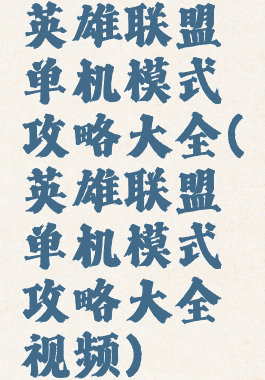 英雄联盟
单机模式
攻略大全(
英雄联盟
单机模式
攻略大全
视频)